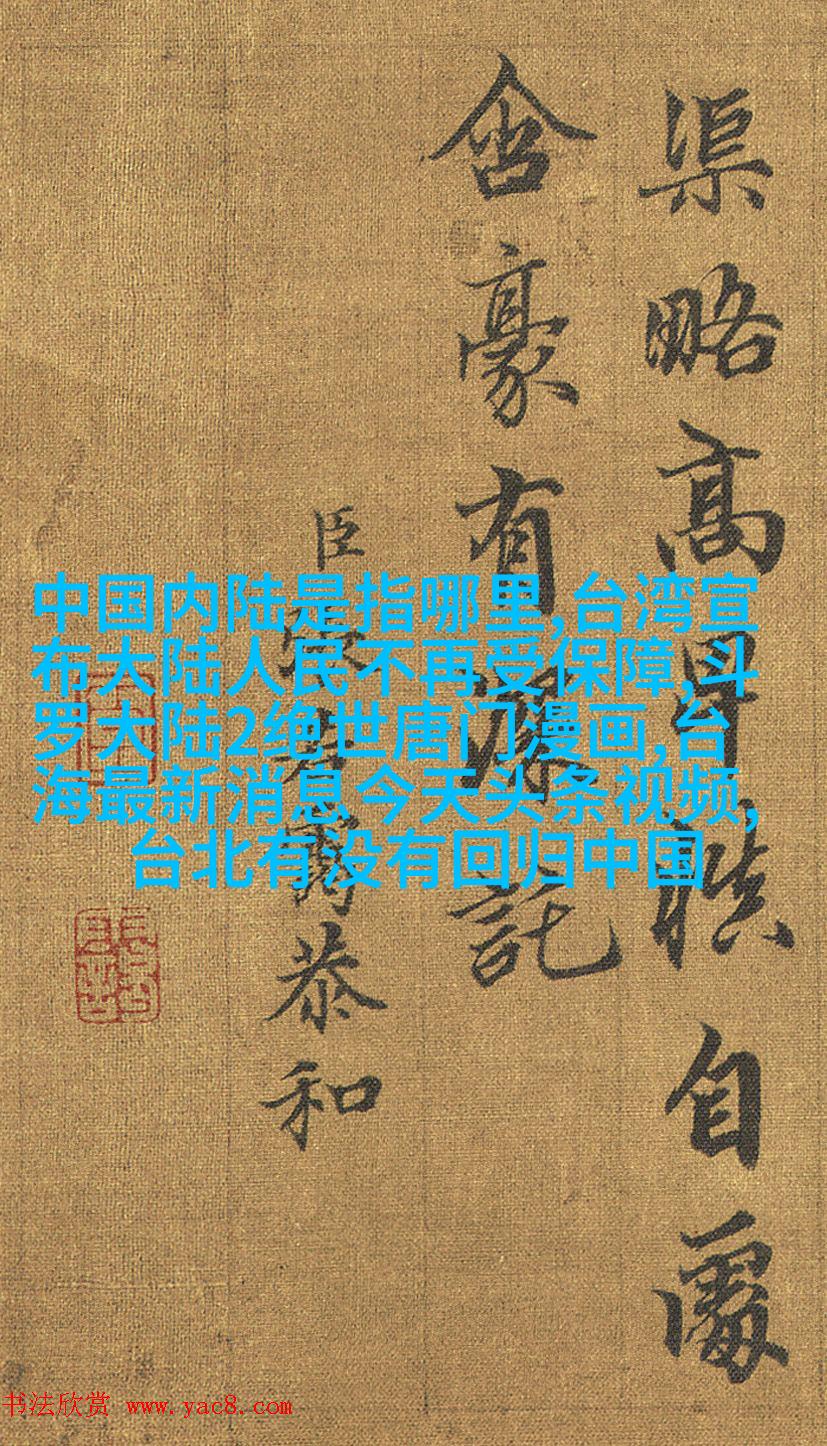 渠略高卑自
含豪有託
臣張若靄恭和
中国内陆是指哪里,台湾宣
布大陆人民不再受保障,斗
罗大陆2绝世唐门漫画,台
海最新消息今天头条视频,
台北有没有回归中国
书法欣赏 www.yac8.com